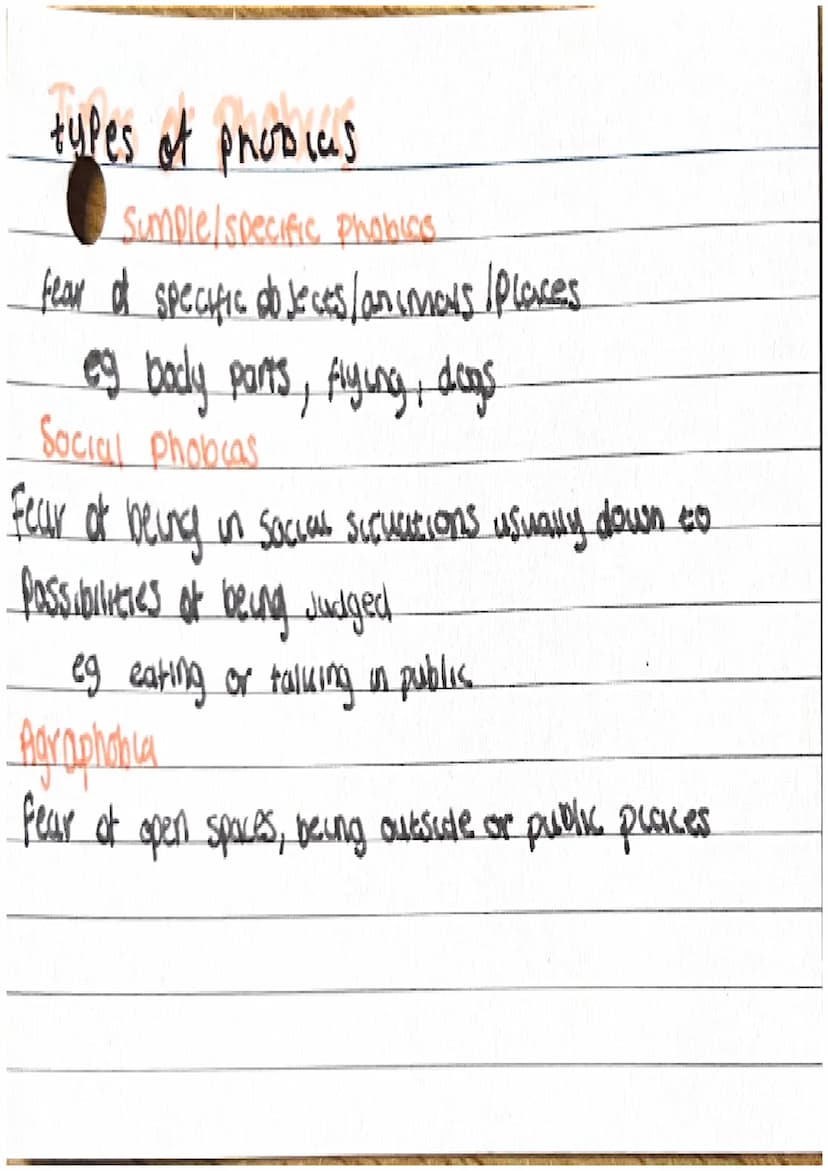 types of phobias
Simple/specific phobias
fear of specific objects/animals/places
eg body parts, flying, dogs
Social phobias
Fear of being in social situations usually down to
possibilities of being judged
eg eating or talking in public
Agraphobia
fear of open spaces, being outside or public places